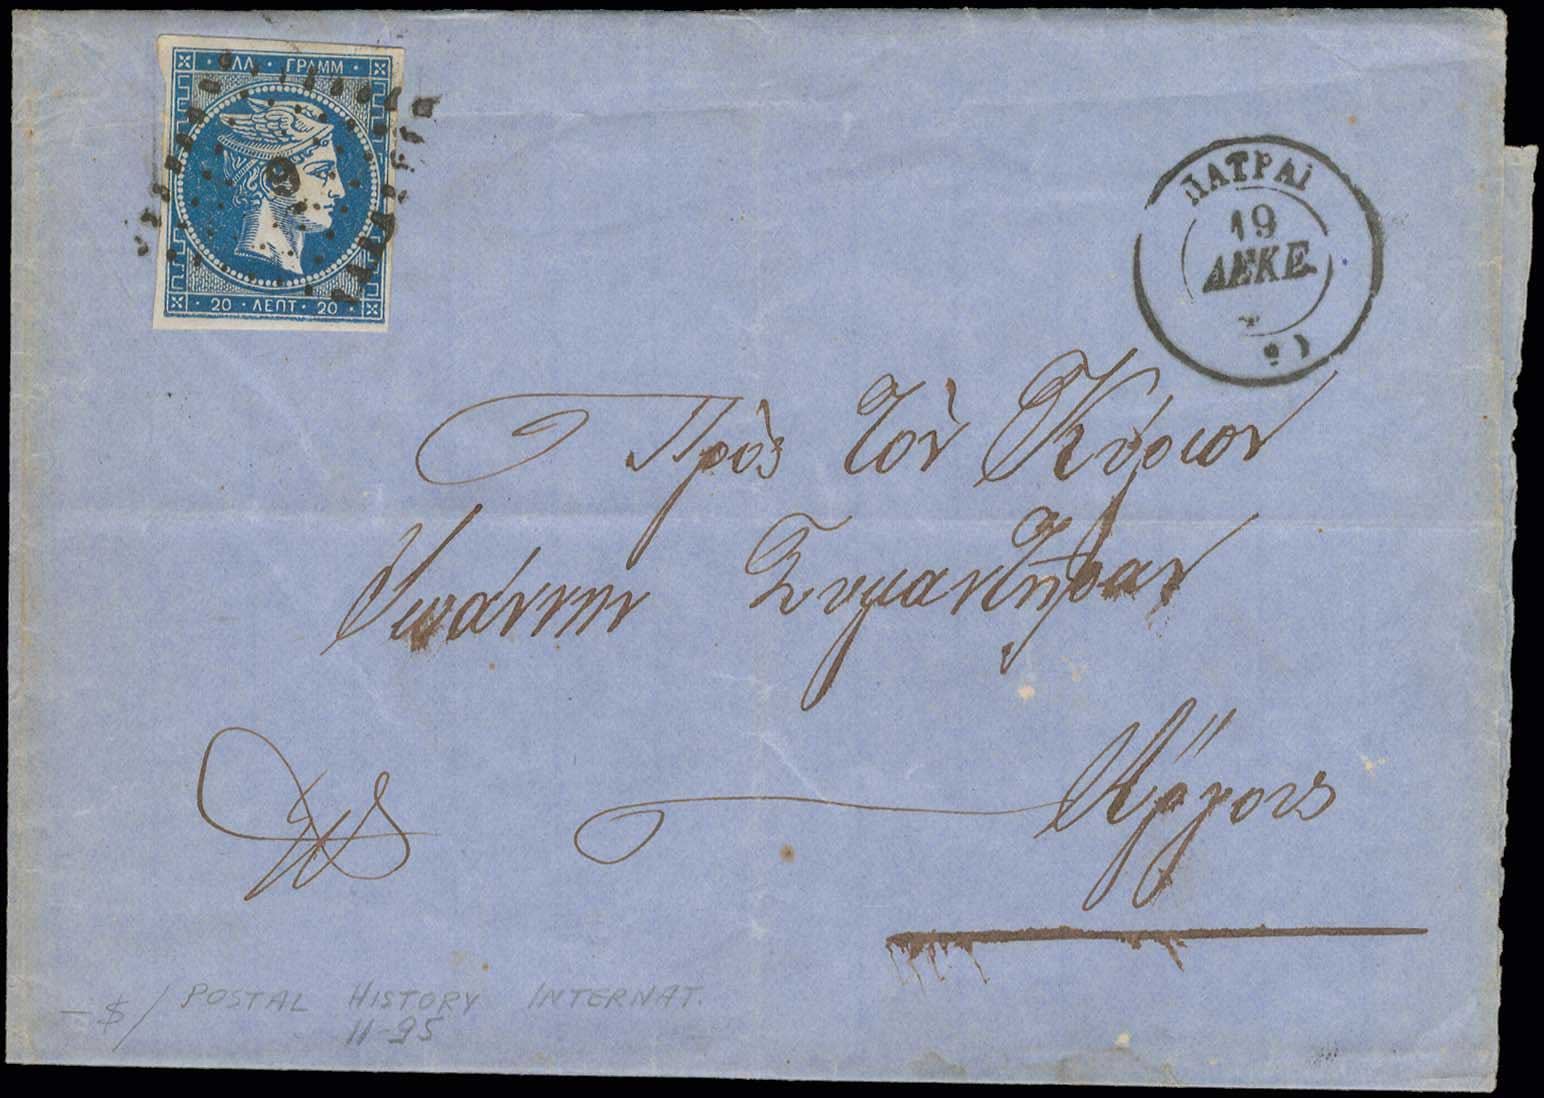 ΕΛΛ · ΓΡΑΜΜ ·
9
· 20 · ΛΕΠΤ · 20 ·
ΠΑΤΡΑΙ
19
ΔΕΚΕ.
Πρὸς τὸν Κύριον
Ἰωάννην Συμαντήραν
Ἄργος
POSTAL HISTORY INTERNAT.
11-95